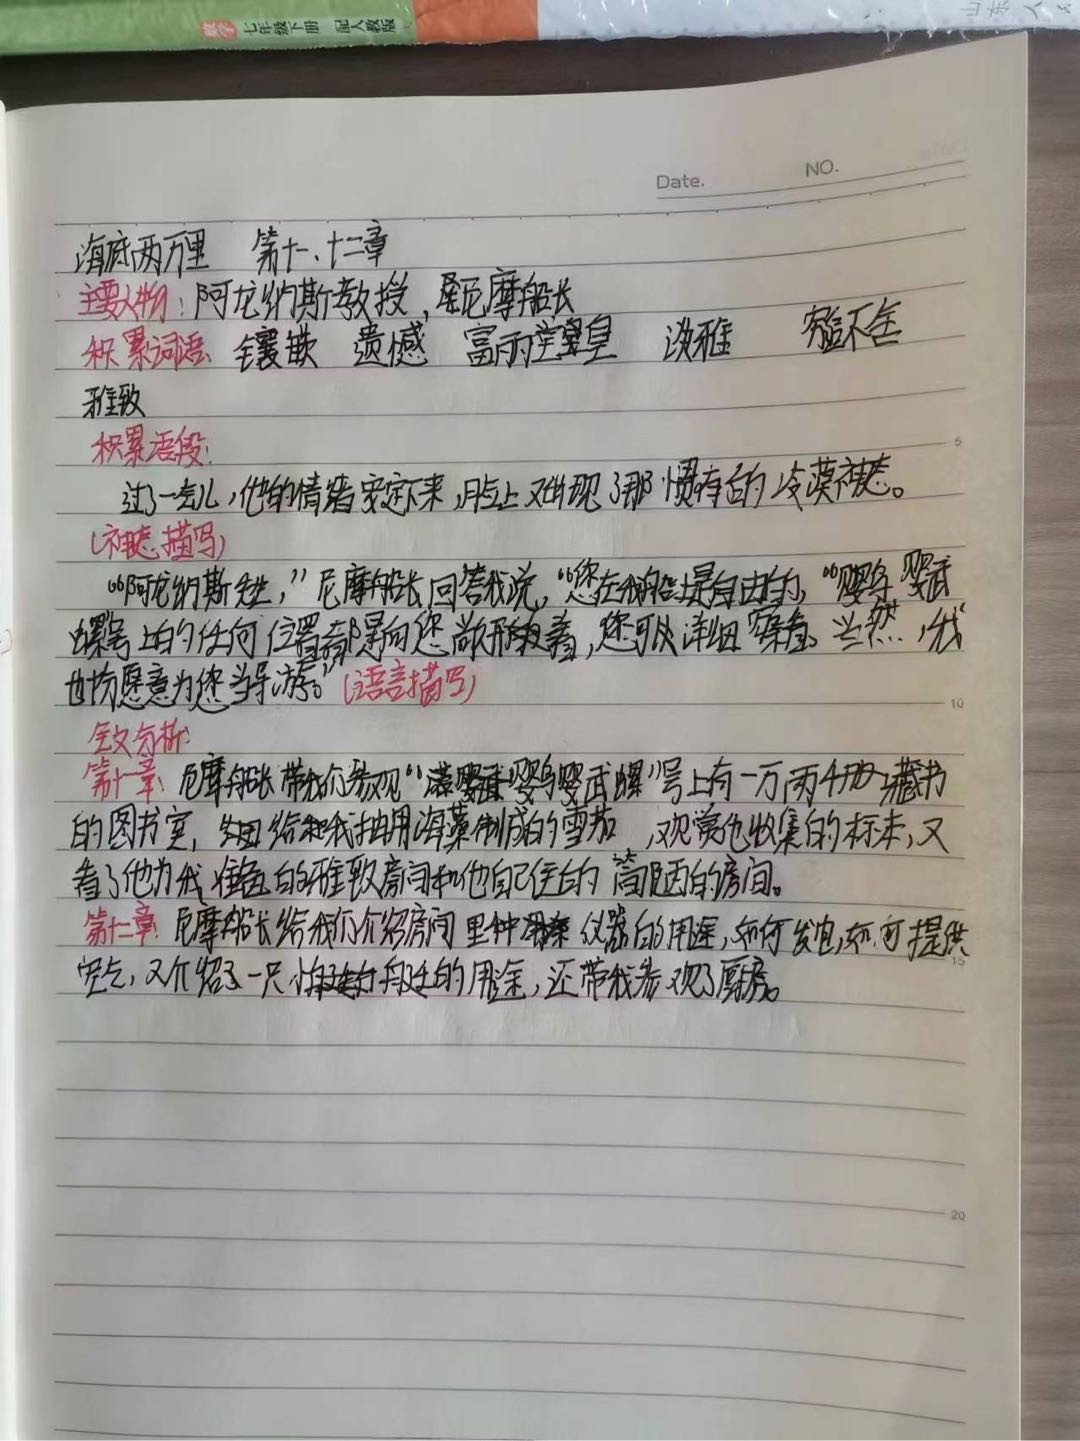 数学 七年级下册 配人教版
山东人
Date.
NO.
海底两万里 第十一、十二章
主要人物：阿龙纳斯教授，尼摩船长
积累词语：镶嵌 遗憾 富丽堂皇 淡雅
雅致
积累语段：
过了一会儿，他的情绪安定下来，脸上又出现了那惯有的冷漠神态。
(神态描写)
“阿龙纳斯先生，”尼摩船长回答我说，“您在我船上是自由的，“鹦鹉
螺”号上的任何位置都是向您敞开着，您可以详细察看。当然，我
也愿意为您当导游。”(语言描写)
5
10
15
20
第十一章：尼摩船长带我们参观“鹦鹉螺”号上有一万两千册藏书
的图书室，给我抽用海藻制成的雪茄，观赏他收集的标本，又
看了他为我准备的雅致房间和他自己住的简陋的房间。
第十二章：尼摩船长给我们介绍房间里种仪器的用途，如何发电，如何提供
空气，又介绍了一只的用途，还带我参观了厨房。